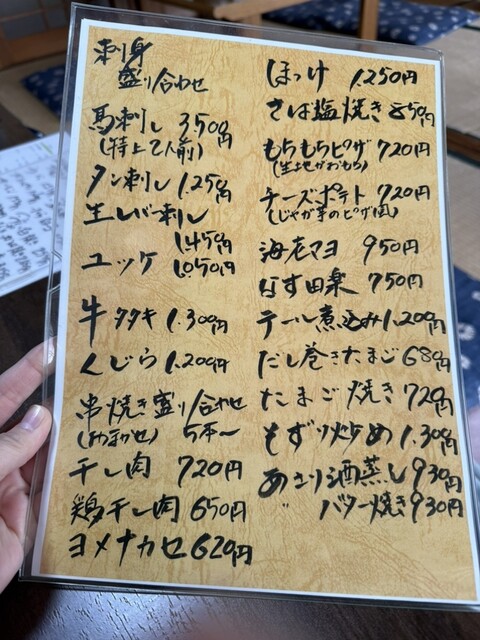 刺身
盛り合わせ
馬刺し 3,500円
(特上2人前)
タン刺し 1,250円
生レバー刺し
1,450円
ユッケ 1,050円
牛タタキ 1,300円
くじら 1,200円
串焼き盛り合わせ
(おまかせ) 5本〜
干し肉 720円
鶏干し肉 650円
ヨメナカセ 620円
ほっけ 1,250円
さば塩焼き 850円
もちもちピザ 720円
(生地がおもち)
チーズポテト 720円
(じゃが芋のピザ風)
海老マヨ 950円
なす田楽 750円
テール煮込み 1,200円
だし巻きたまご 680円
たまご焼き 720円
もずり炒め 1,300円
あさり酒蒸し 930円
〃 バター焼き 930円